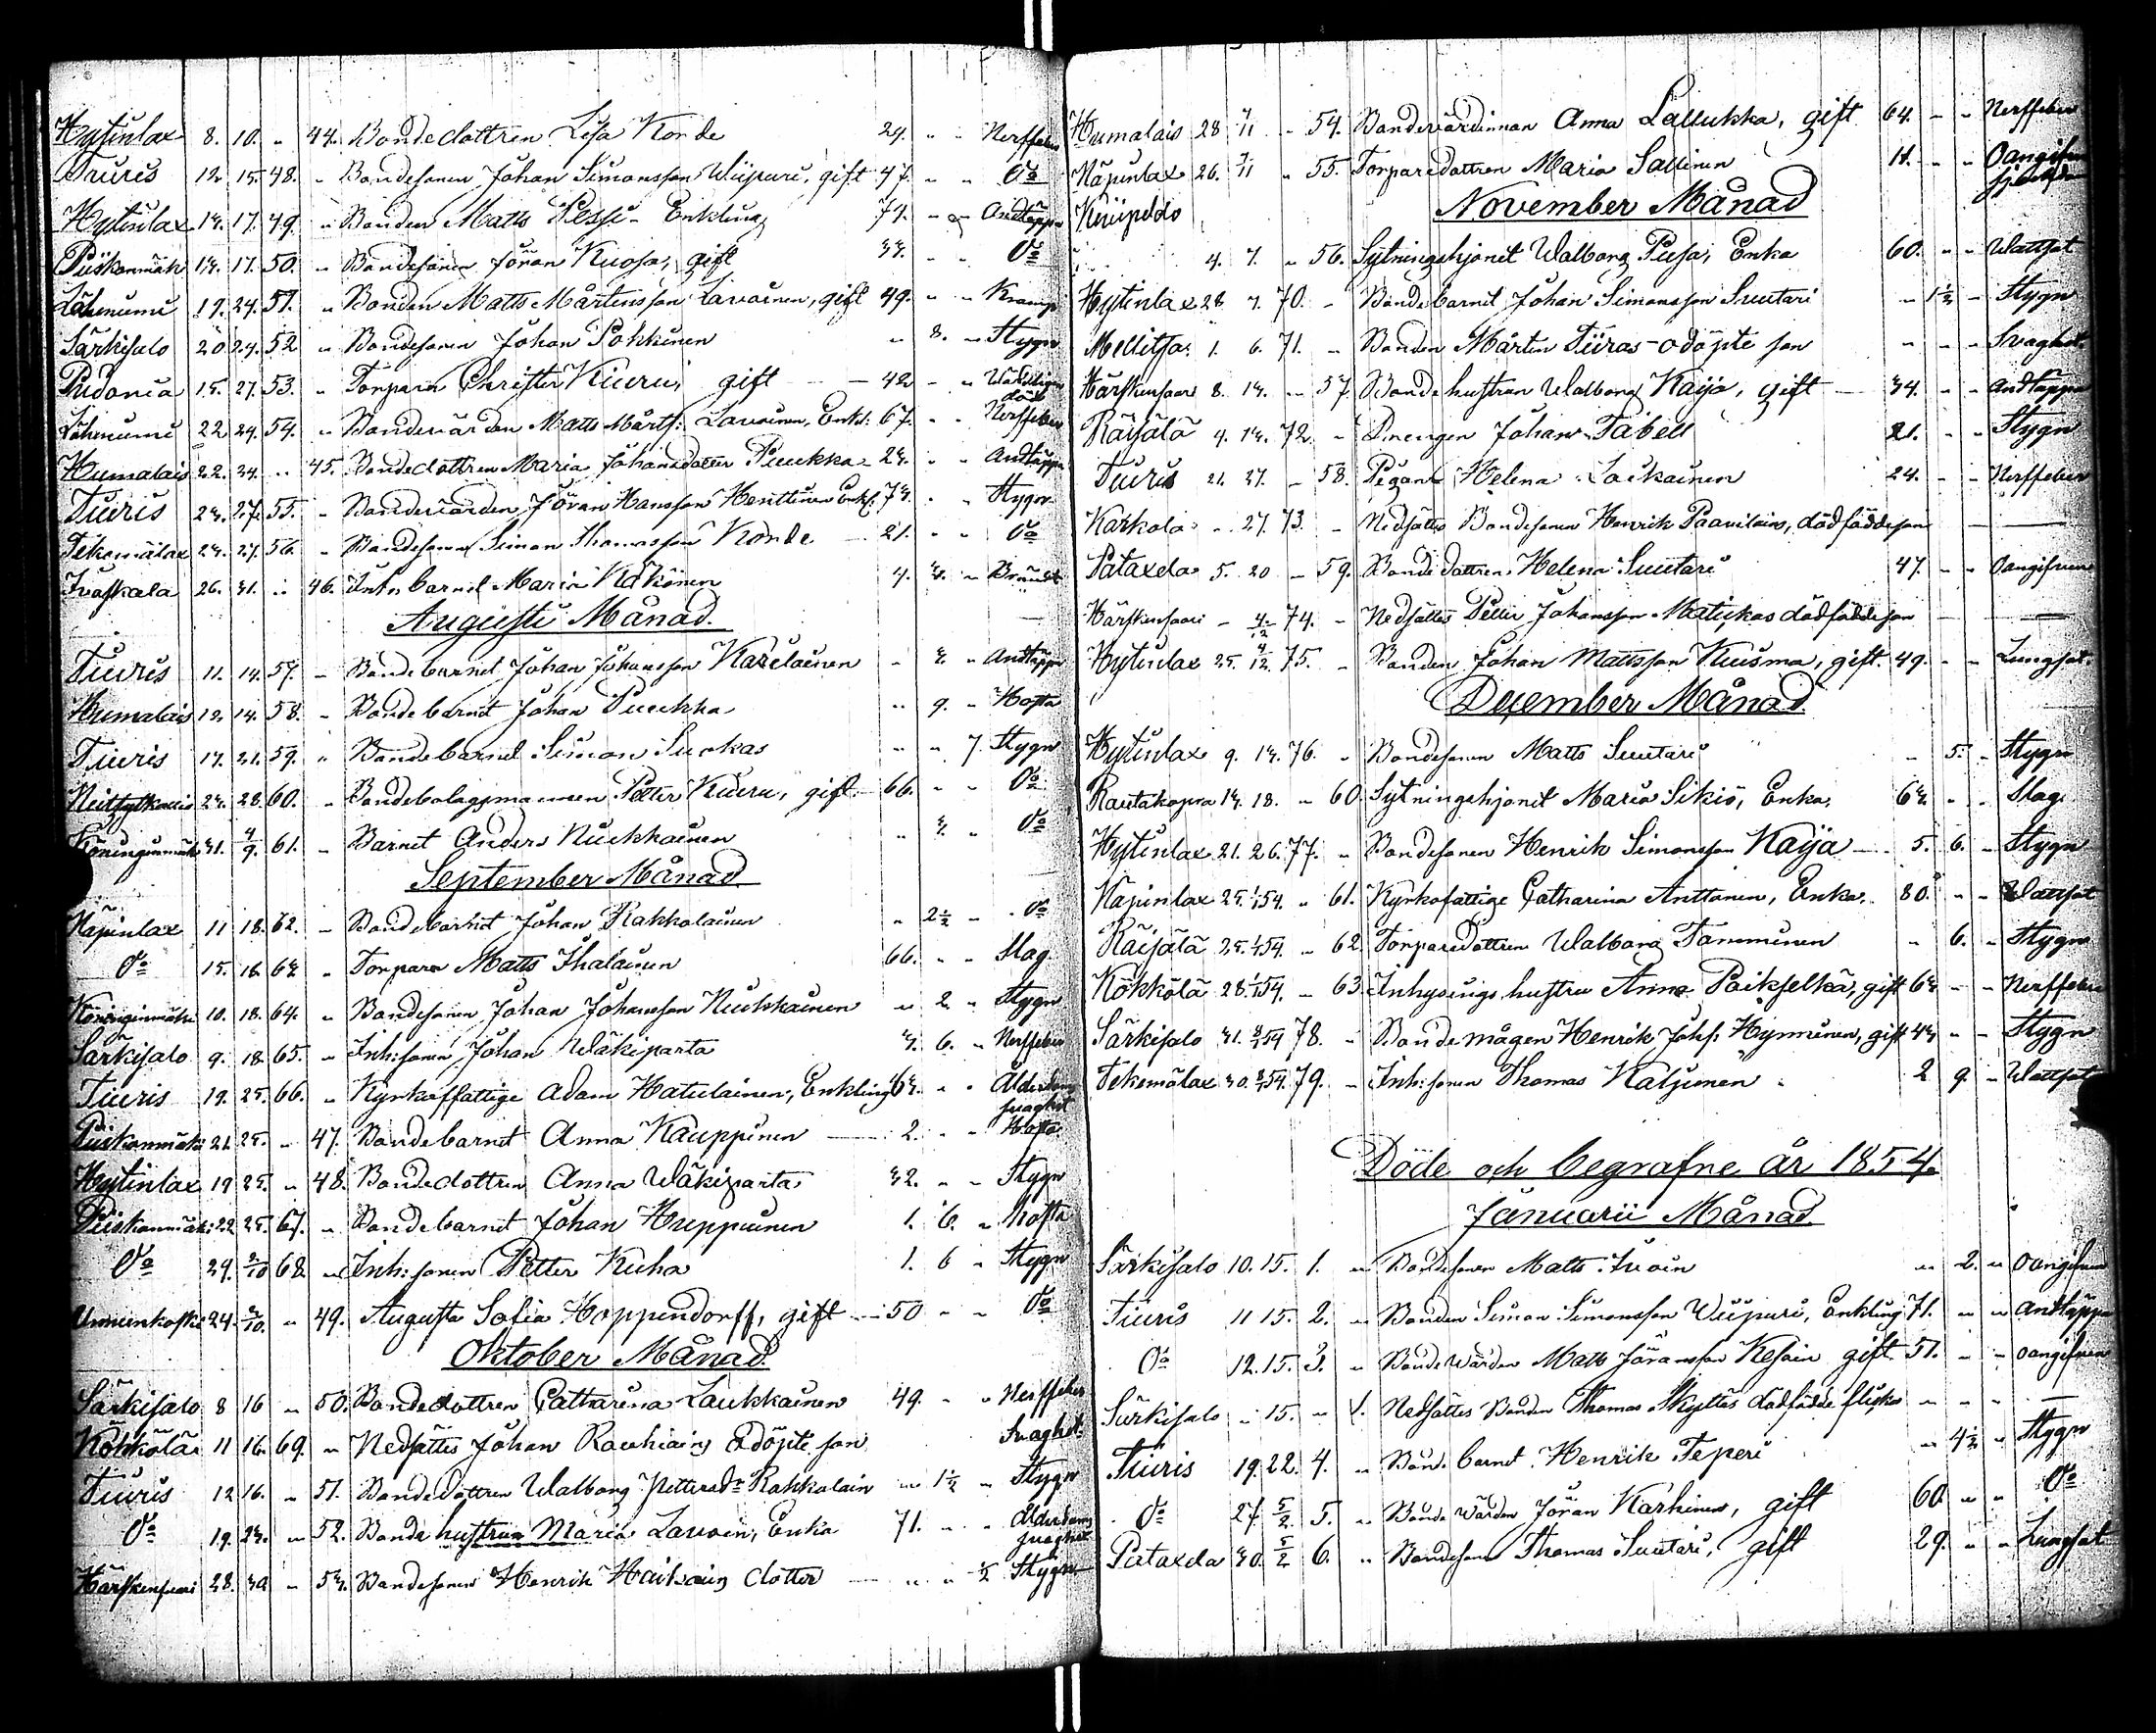 Hytinlax 8. 10. " 44. Bondedottren Lisa Konde 24. " " Nerffeber
Tiuris 12 15. 48. " Bondesonen Johan Simonsson Wiipuri, gift 47. " " Do
Hytinlax 14. 17. 49. " Bonden Matts Pessi - Enkling 74. " " Andtäppa
Piiskonmäki 13. 17. 50. " Bondesonen Jöran Kuosa, gift 33. " " Do
Lähenumi 19. 24. 51. " Bonden Matts Mårtensson Lavoinen, gift 49. " " Kramp
Särkisalo 20 24. 52 " Bondesonen Johan Pokkinen " 8. " Stygn
Pudoria 15. 27. 53. " Torparen Christer Kiuru, gift 42 " " Wådelig död
Lähenumi 22 29. 54. " Bondevärden Matts Mårts: Lavoinen, Enkl: 67. " " Nerffeber
Humalais 22. 24. " 45. Bondedottren Maria Johansdotter Puukka 23. " " Andtäppa
Tiuris 23. 27. 55. " Bondevärden Jöran Hansson Henttinen Enkl. 73. " " Stygn
Tekomälax 23. 27. 56. " Bondesonen Simon Thomasson Konde 21. " " Do
Ivaskala 26. 31. " 46. Inh: barnet Maria Käkönen 4. 3. "
Augusti Månad.
Tiuris 11. 14. 57. " Bondebarnet Johan Johansson Karelainen " 3. " Andtäppa
Humalais 12. 14. 58. " Bondebarnet Johan Puukka " 9. " Hosta
Tiuris 17. 21. 59. " Bondebarnet Simon Suokas " " 7. Stygn
23. 28. 60. " Bondebolagsmannen Petter Kiuru, gift 66. " " Do
Köninginmäki 31. 4/9. 61. " Barnet Anders Nuckkainen " 3. " Do
September Månad.
Näpinlax 11 18. 62. " Bondebarnet Johan Rakkolainen " 2½ " Do
Do 15. 18. 63. " Torparen Matts Ihalainen 66. " " Slag.
Köninginmäki 10. 18. 64. " Bondesonen Johan Johansson Nuckkainen " 2 " Stygn
Särkisalo 9. 18 65. " Inh: sonen Johan Wäkiparta 3. 6. " Nerffeber
Tiuris 19. 25. 66. " Kyrkoffattige Adam Hatulainen, Enkling 63. " " Ålderdoms svaghet
Piiskonmäki 21. 25. " 47. Bondebarnet Anna Kauppinen 2. " " Hosta.
Hytinlax 19 25. " 48. Bondedottren Anna Wäkiparta 32. " " Stygn
Piiskonmäki 22 25. 67. " Bondebarnet Johan Huppuinen 1. 6. " Hosta
Do 29. 2/10 68. " Inh: sonen Petter Kuha 1. 6 " Stygn
Unnunkoski 24. 2/10. " 49. Augusta Sofia Hoppendorff, gift 50 " " Do
Oktober Månad.
Särkisalo 8 16 " 50. Bondedottren Catharina Laukkainen 49. " " Nerffeber
Kökkölä 11 16. 69. " Nedsattes Johan Rauhiains Odöpte son Svaghet.
Tiuris 12 16. " 51. Bondedottren Walborg Pettersdr Rakkolain " 1½ " Stygn
Do 19. 23. " 52. Bonde hustrun Maria Lavoin, Enka 71. " " Ålderdoms svaghet
Härskensaari 28. 30 " 53. Bondesonen Henrik Haikains dotter " " ½ Stygn
Humalais 28 7/11 " 54. Bondevärdinnan Anna Lallukka, gift 64. " " Nerffeber
Näpinlax 26. 7/11 " 55. Torparedottren Maria Sallinen 11. " " Oangifven sjukdom
November Månad
Kiriipeldo
4. 7. " 56. Sytningshjonet Walborg Pusa, Enka 60. " " Wattsot
Hytinlax 28 7. 70. " Bondebarnet Johan Simonsson Suutari " 1½ " Stygn
Mellitsa. 1. 6. 71. " Bonden Mårten Tiiras - odöpte son " " " Svaghet.
Härskensaari 8. 13. " 57. Bondehustrun Walborg Kaija, gift 34. " " Andtäppa
Räisälä 4. 13. 72. " Drengen Johan Tabell 21. " " Stygn
Tiuris 21. 27. " 58. Pigan Helena Laikainen 24. " " Nerffeber
Kärkölä " 27. 73. " Nedsattes Bondesonen Henrik Paavilains, dödfödde son
Pataxela 5. 20 " 59. Bondedottren Helena Suutari 47. " " Oangifven
Härskensaari " 4/12 74. " Nedsattes Petter Johansson Matukas dödfödde son
Hytinlax 25. 4/12. 75. " Bonden Johan Mattsson Kuisma, gift. 49. " " Lungsot.
December Månad
Hytinlax 9. 13. 76. " Bondesonen Matts Suutari " 5. " Stygn
Rautakopra 13. 18. " 60. Sytningshjonet Maria Sikiö, Enka, 63. " " Slag.
Hytinlax 21. 26. 77. " Bondesonen Henrik Simonsson Kaija 5. 6. " Stygn
Näpinlax 25. 1/1 54. " 61. Kyrkofattige Catharina Anttonen, Enka. 80. " " Wattsot
Räisälä 25. 1/1 54. " 62. Torparedottren Walborg Tamminen " 6. " Stygn
Kökkölä 28. 1/1 54. " 63. Inhysings hustru Anna Paikselkä, gift 63. " " Nerffeber
Särkisalo 31. 8/1 54 78. " Bondemågen Henrik Johs: Hynninen, gift 43 " " Stygn
Tekomälax 30. 8/1 54. 79. " Inh: sonen Thomas Kaljunen 2 9. " Wattsot
Döde och begrafne år 1854.
Januarii Månad.
Särkisalo 10. 15. 1. " Bondesonen Matts Inoin " 2. " oangifven
Tiuris 11 15. 2. " Bonden Simon Simonsson Wiipuri, Enkling 71. " " Andtäppa
Do 12. 15. 3. " Bondevärden Matts Jöransson Kesäin gift. 51. " " oangifven
Särkisalo " 15. " 1. Nedsattes Bonden Thomas Skyttäs dödfödde flicka " " "
Tiuris 19. 22. 4. " Bond. barnet Henrik Teperi " 4½ " Stygn
Do 27. 5/2. 5. " Bonde Wärden Jöran Karhinen, gift 60. " " Do
Pataxela 30. 5/2 6. " Bondesonen Thomas Suutari, gift 29. " " Lungsot